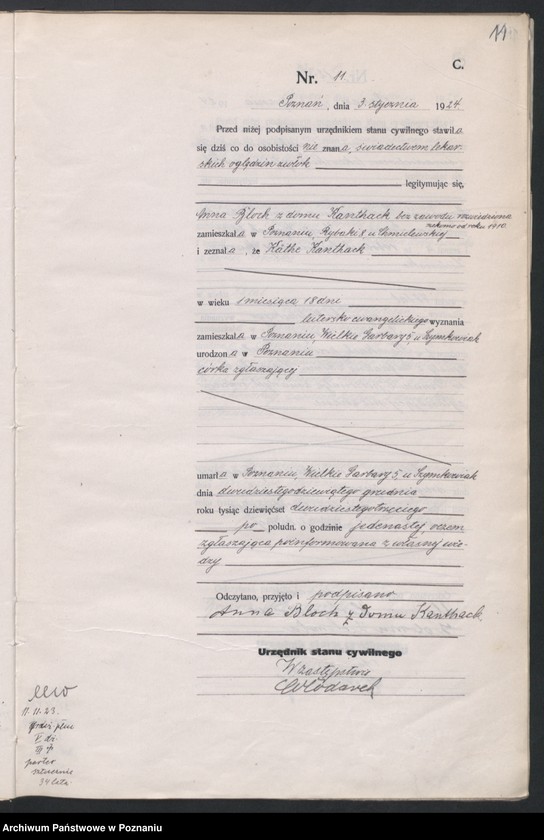 11
C.
Nr. 11
Poznań, dnia 3 stycznia 1924
Przed niżej podpisanym urzędnikiem stanu cywilnego stawiła
się dziś co do osobistości nie znana, świadectwem lekar-
skich oględzin zwłok
legitymując się,
Anna Bloch z domu Kanthack bez zawodu rozwiedziona
od roku 1910
zamieszkała w Poznaniu, Rybaki 8 u Chmielewskiej
i zeznała, że Käthe Kanthack
w wieku 1 miesiąca 18 dni
lutersko ewangelickiego wyznania
zamieszkała w Poznaniu, Wielkie Garbary 5, u Szymkowiak
urodzona w Poznaniu
córka zgłaszającej
umarła w Poznaniu, Wielkie Garbary 5, u Szymkowiak
dnia dwudziestegodziewiątego grudnia
roku tysiąc dziewięćset dwudziestegotrzeciego
po połudn. o godzinie jedenastej, oczem
zgłaszająca poinformowana z własnej wie-
dzy
Odczytano, przyjęto i podpisano
Anna Bloch z Domu Kanthack.
Urzędnik stanu cywilnego
W zastępstwie
Włodarek
11.11.23.
parter
34 lata
Archiwum Państwowe w Poznaniu